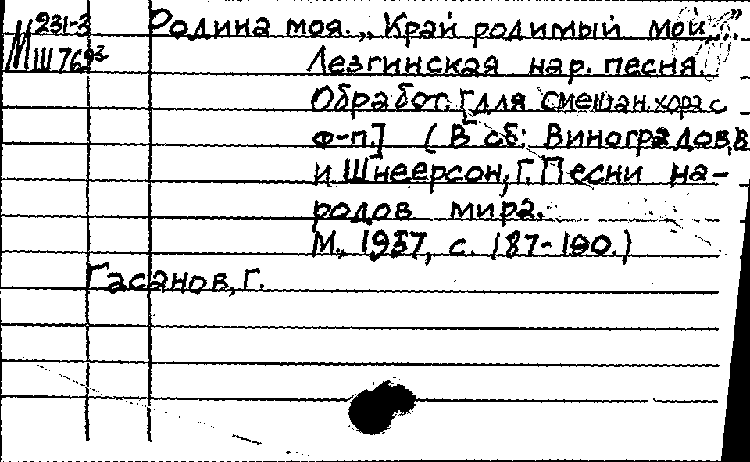 М 231-3 Родина моя. „Край родимый мой..."
Ш 769-3 Лезгинская нар. песня.
Обработ. [для смешан. хора с
ф-п.] (В сб: Виноградов, В.
и Шнеерсон, Г. Песни на-
родов мира.
М., 1957, с. 187-190.)
Гасанов, Г.